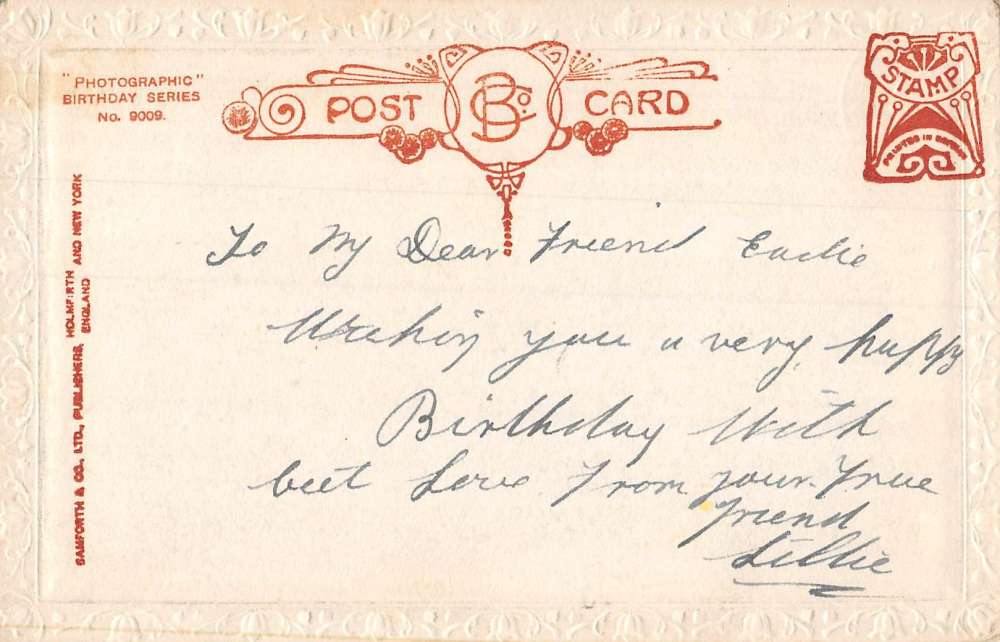 "PHOTOGRAPHIC"
BIRTHDAY SERIES
No. 9009.
POST CARD
B & Co.
STAMP
PRINTED IN
BAMFORTH & CO., LTD., PUBLISHERS, HOLMFIRTH AND NEW YORK
ENGLAND
To My Dear Friend
Wishing you a very happy
Birthday With
best Love From your True
Friend
Lillie